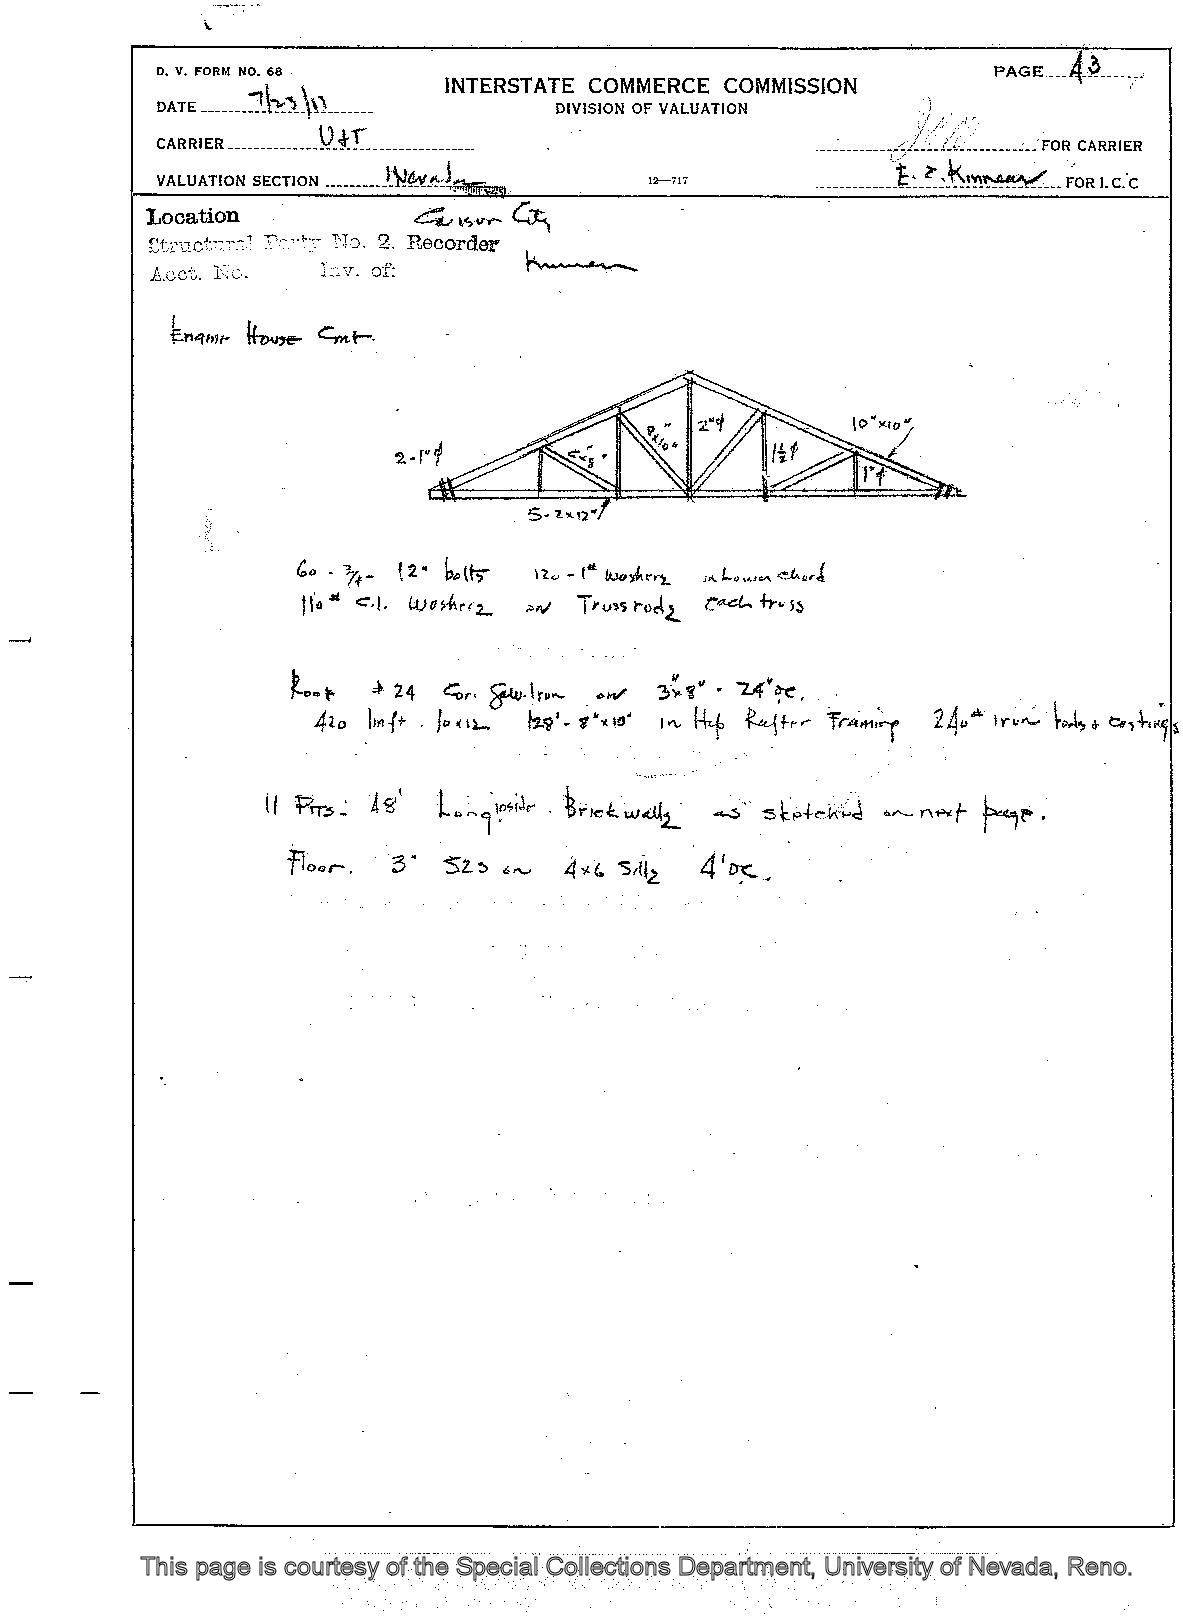 D. V. FORM NO. 68
INTERSTATE COMMERCE COMMISSION
DIVISION OF VALUATION
PAGE 43
DATE 7/23/17
CARRIER V&T
FOR CARRIER
VALUATION SECTION Nevada
12—717
E. Z. Kinnear FOR I. C. C
Location Carson City
Structural Party No. 2. Recorder
Acct. No. Inv. of: Kinnear
Engine House Cont.
2-1"ϕ
6x8"
8"x10"
2"ϕ
1½ϕ
10"x10"
1"ϕ
5-2x12"
60 - 3/4 - 12" bolts 120 - 1# Washers in Lower Chord
110# C.I. Washers on Truss rods Each truss
Roof #24 Cor. Galv. Iron on 3"x8" - 24"oc.
420 lin ft. 10x12 128' - 8"x10" in Hip Rafter Framing 240# iron rods & castings
11 Pits: 48' Long inside. Brick walls as sketched on next page.
Floor. 3" S2S on 4x6 Sills 4'oc.
This page is courtesy of the Special Collections Department, University of Nevada, Reno.